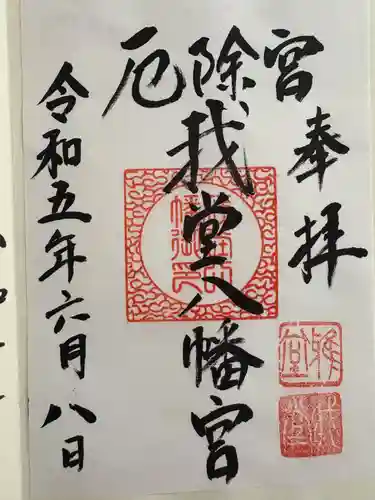 厄除宮
奉拝
我堂八幡宮
令和五年六月八日